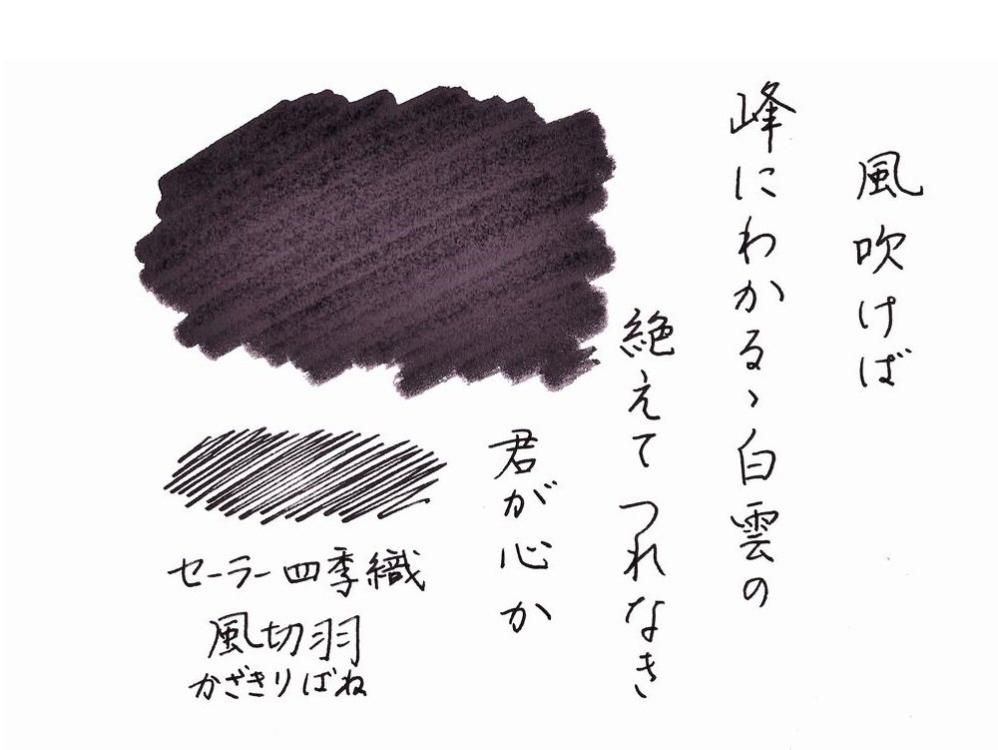 風吹けば
峰にわかるゝ白雲の
絶えてつれなき
君が心か
セーラー四季織
風切羽
かざきりばね